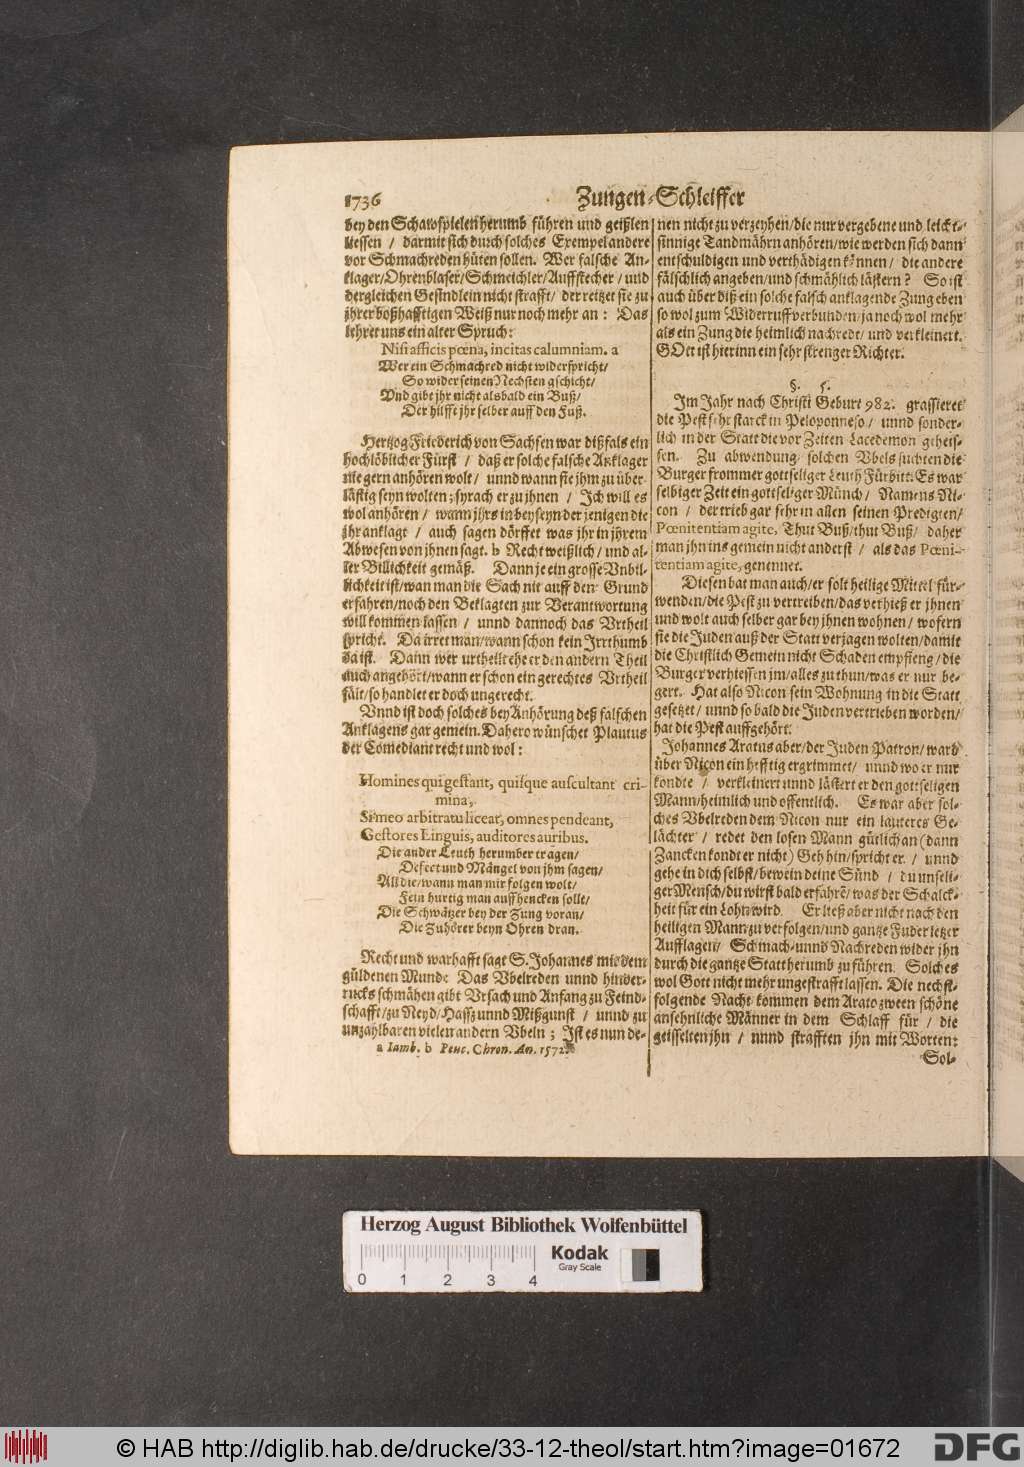 1736
Zungen-Schleiffer
bey den Schawspielen herumb führen und geißlen
liessen / darmit sich durch solches Exempel andere
vor Schmachreden hüten sollen. Wer falsche An-
klager/Ohrenblaser/Schmeichler/Auffstecher / und
dergleichen Gesindlein nicht strafft/ der reitzet sie zu
jhrer boßhafftigen Weiß nur noch mehr an : Das
lehret uns ein alter Spruch:
Nisi afficis pœna, incitas calumniam. a
Wer ein Schmachred nicht widerspricht/
So wider seinen Nechsten gschicht/
Vnd gibt jhr nicht alsbald ein Buß/
Der hilfft jhr selber auff den Fuß.
Hertzog Friederich von Sachsen war dißfals ein
hochlöblicher Fürst / daß er solche falsche Anklager
nie gern anhören wolt / unnd wann sie jhm zu über-
lästig seyn wolten; sprach er zu jhnen / Ich will es
wol anhören / wann jhrs in beyseyn der jenigen die
jhr anklagt / auch sagen dörffet was jhr in jhrem
Abwesen von jhnen sagt. b Recht weißlich / und al-
ler Billichkeit gemäß. Dann je ein grosse Unbil-
lichkeit ist/wan man die Sach nit auff den Grund
erfahren/noch den Beklagten zur Verantwortung
will kommen lassen / unnd dannoch das Vrtheil
spricht. Da irret man/wann schon kein Irrthumb
da ist. Dann wer urtheilt ehe er den andern Theil
auch angehört/wann er schon ein gerechtes Vrtheil
fält/so handlet er doch ungerecht.
Vnnd ist doch solches bey Anhörung deß falschen
Anklagens gar gemein. Dahero wünschet Plautus
der Comediant recht und wol :
Homines qui gestant, quiisque auscultant cri-
mina,
Si meo arbitratu liceat, omnes pendeant,
Gestores Linguis, auditores auribus.
Die ander Leuth herumber tragen/
Defect und Mängel von jhm sagen/
All die/wann man mir folgen wolt/
Fein hurtig man auffhencken solle/
Die Schwätzer bey der Zung voran/
Die Zuhörer beyn Ohren dran.
Recht und warhafft sagt S. Johannes mit dem
güldenen Mund: Das Vbelreden unnd hinder-
rucks schmähen gibt Vrsach und Anfang zu Feind-
schafft/zu Neyd/Hass unnd Mißgunst / unnd zu
unzahlbaren vielen andern Vbeln ; Ist es nun de-
a Iamb. b Peuc. Chron. An. 1572.
nen nicht zu verzeyhen/die nur vergebene und leicht-
sinnige Tandmährn anhören/wie werden sich dann
entschuldigen und verthädigen können / die andere
fälschlich angeben/und schmählich lästern ? So ist
auch über diß ein solche falsch anklagende Zung eben
so wol zum Widerruff verbunden/ja noch wol mehr
als ein Zung die heimlich nachredt/ und verkleinert.
GOtt ist hierinn ein sehr strenger Richter.
§. 5.
Im Jahr nach Christi Geburt 982. grassieret
die Pest sehr starck in Peloponneso / unnd sonder-
lich in der Statt die vor Zeiten Lacedemon geheis-
sen. Zu abwendung solchen Vbels suchten die
Burger frommer gottseliger Leuth Fürbitt: Es war
selbiger Zeit ein gottseliger Münch / Namens Ni-
con / der trieb gar sehr in allen seinen Predigten/
Pœnitentiam agite, Thut Buß/thut Buß/ daher
man jhn ins gemein nicht anderst / als das Pœni-
tentiam agite, genennet.
Diesen bat man auch/er solt heilige Mittel für-
wenden/die Pest zu vertreiben/das verhieß er jhnen
und wolt auch selber gar bey jhnen wohnen / wofern
sie die Juden auß der Statt verjagen wolten/damit
die Christlich Gemein nicht Schaden empfieng / die
Burger verhiessen jm/alles zu thun/was er nur be-
gert. Hat also Nicon sein Wohnung in die Statt
gesetzet / unnd so bald die Juden vertrieben worden/
hat die Pest auffgehört.
Johannes Aratus aber/der Juden Patron/ ward
über Nicon ein hefftig ergrimmet/ unnd wo er nur
kondte / verkleinert unnd lästert er den gottseligen
Mann/heimlich und offentlich. Es war aber sol-
ches Vbelreden dem Nicon nur ein lauteres Ge-
lächter / redet den losen Mann gütlich an (dann
Zancken kondt er nicht) Geh hin/spricht er / unnd
gehe in dich selbst/bewein deine Sünd / du unseli-
ger Mensch/du wirst bald erfahrē/was der Schalck-
heit für ein Lohn wird. Er ließ aber nicht nach den
heiligen Mann zu verfolgen/und gantze Fuder letzer
Aufflagen/ Schmach-unnd Nachreden wider jhn
durch die gantze Statt herumb zu führen. Solches
wol Gott nicht mehr ungestrafft lassen. Die nechst-
folgende Nacht kommen dem Arato zween schöne
ansehnliche Männer in dem Schlaff für / die
geisselten jhn / unnd strafften jhn mit Worten:
Sol-
Herzog August Bibliothek Wolfenbüttel
Kodak
Gray Scale
0 1 2 3 4
© HAB http://diglib.hab.de/drucke/33-12-theol/start.htm?image=01672
DFG